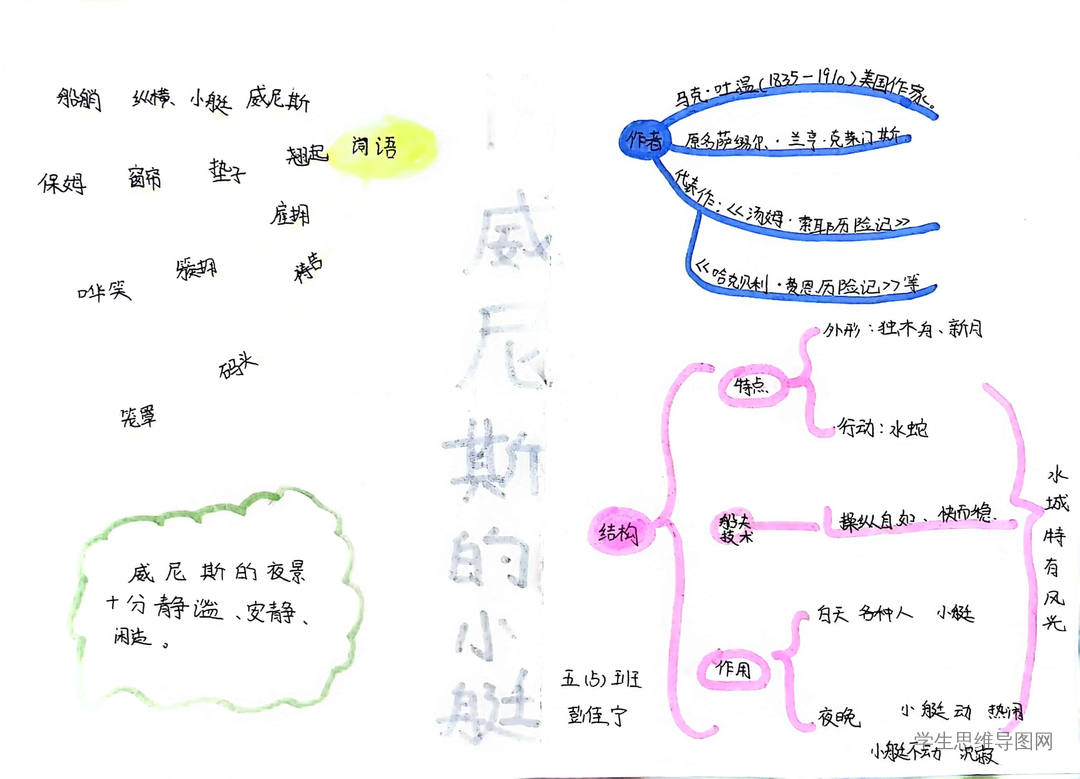 威尼斯的小艇
词语
船艄 纵横、小艇 威尼斯
保姆 窗帘 垫子 翘起
雇拥
哗笑 簇拥 祷告
码头
笼罩
威尼斯的夜景
十分静谧、安静、
闲适。
作者
马克·吐温(1835-1910)美国作家。
原名萨缪尔·兰亨·克莱门斯
代表作:《汤姆·索耶历险记》
《哈克贝利·费恩历险记》等
结构
特点
外形:独木舟、新月
行动:水蛇
船夫
技术
操纵自如、快而稳
作用
白天 各种人 小艇
夜晚 小艇动 热闹
小艇不动 沉寂
水城特有风光
五(5)班
彭佳宁
学生思维导图网